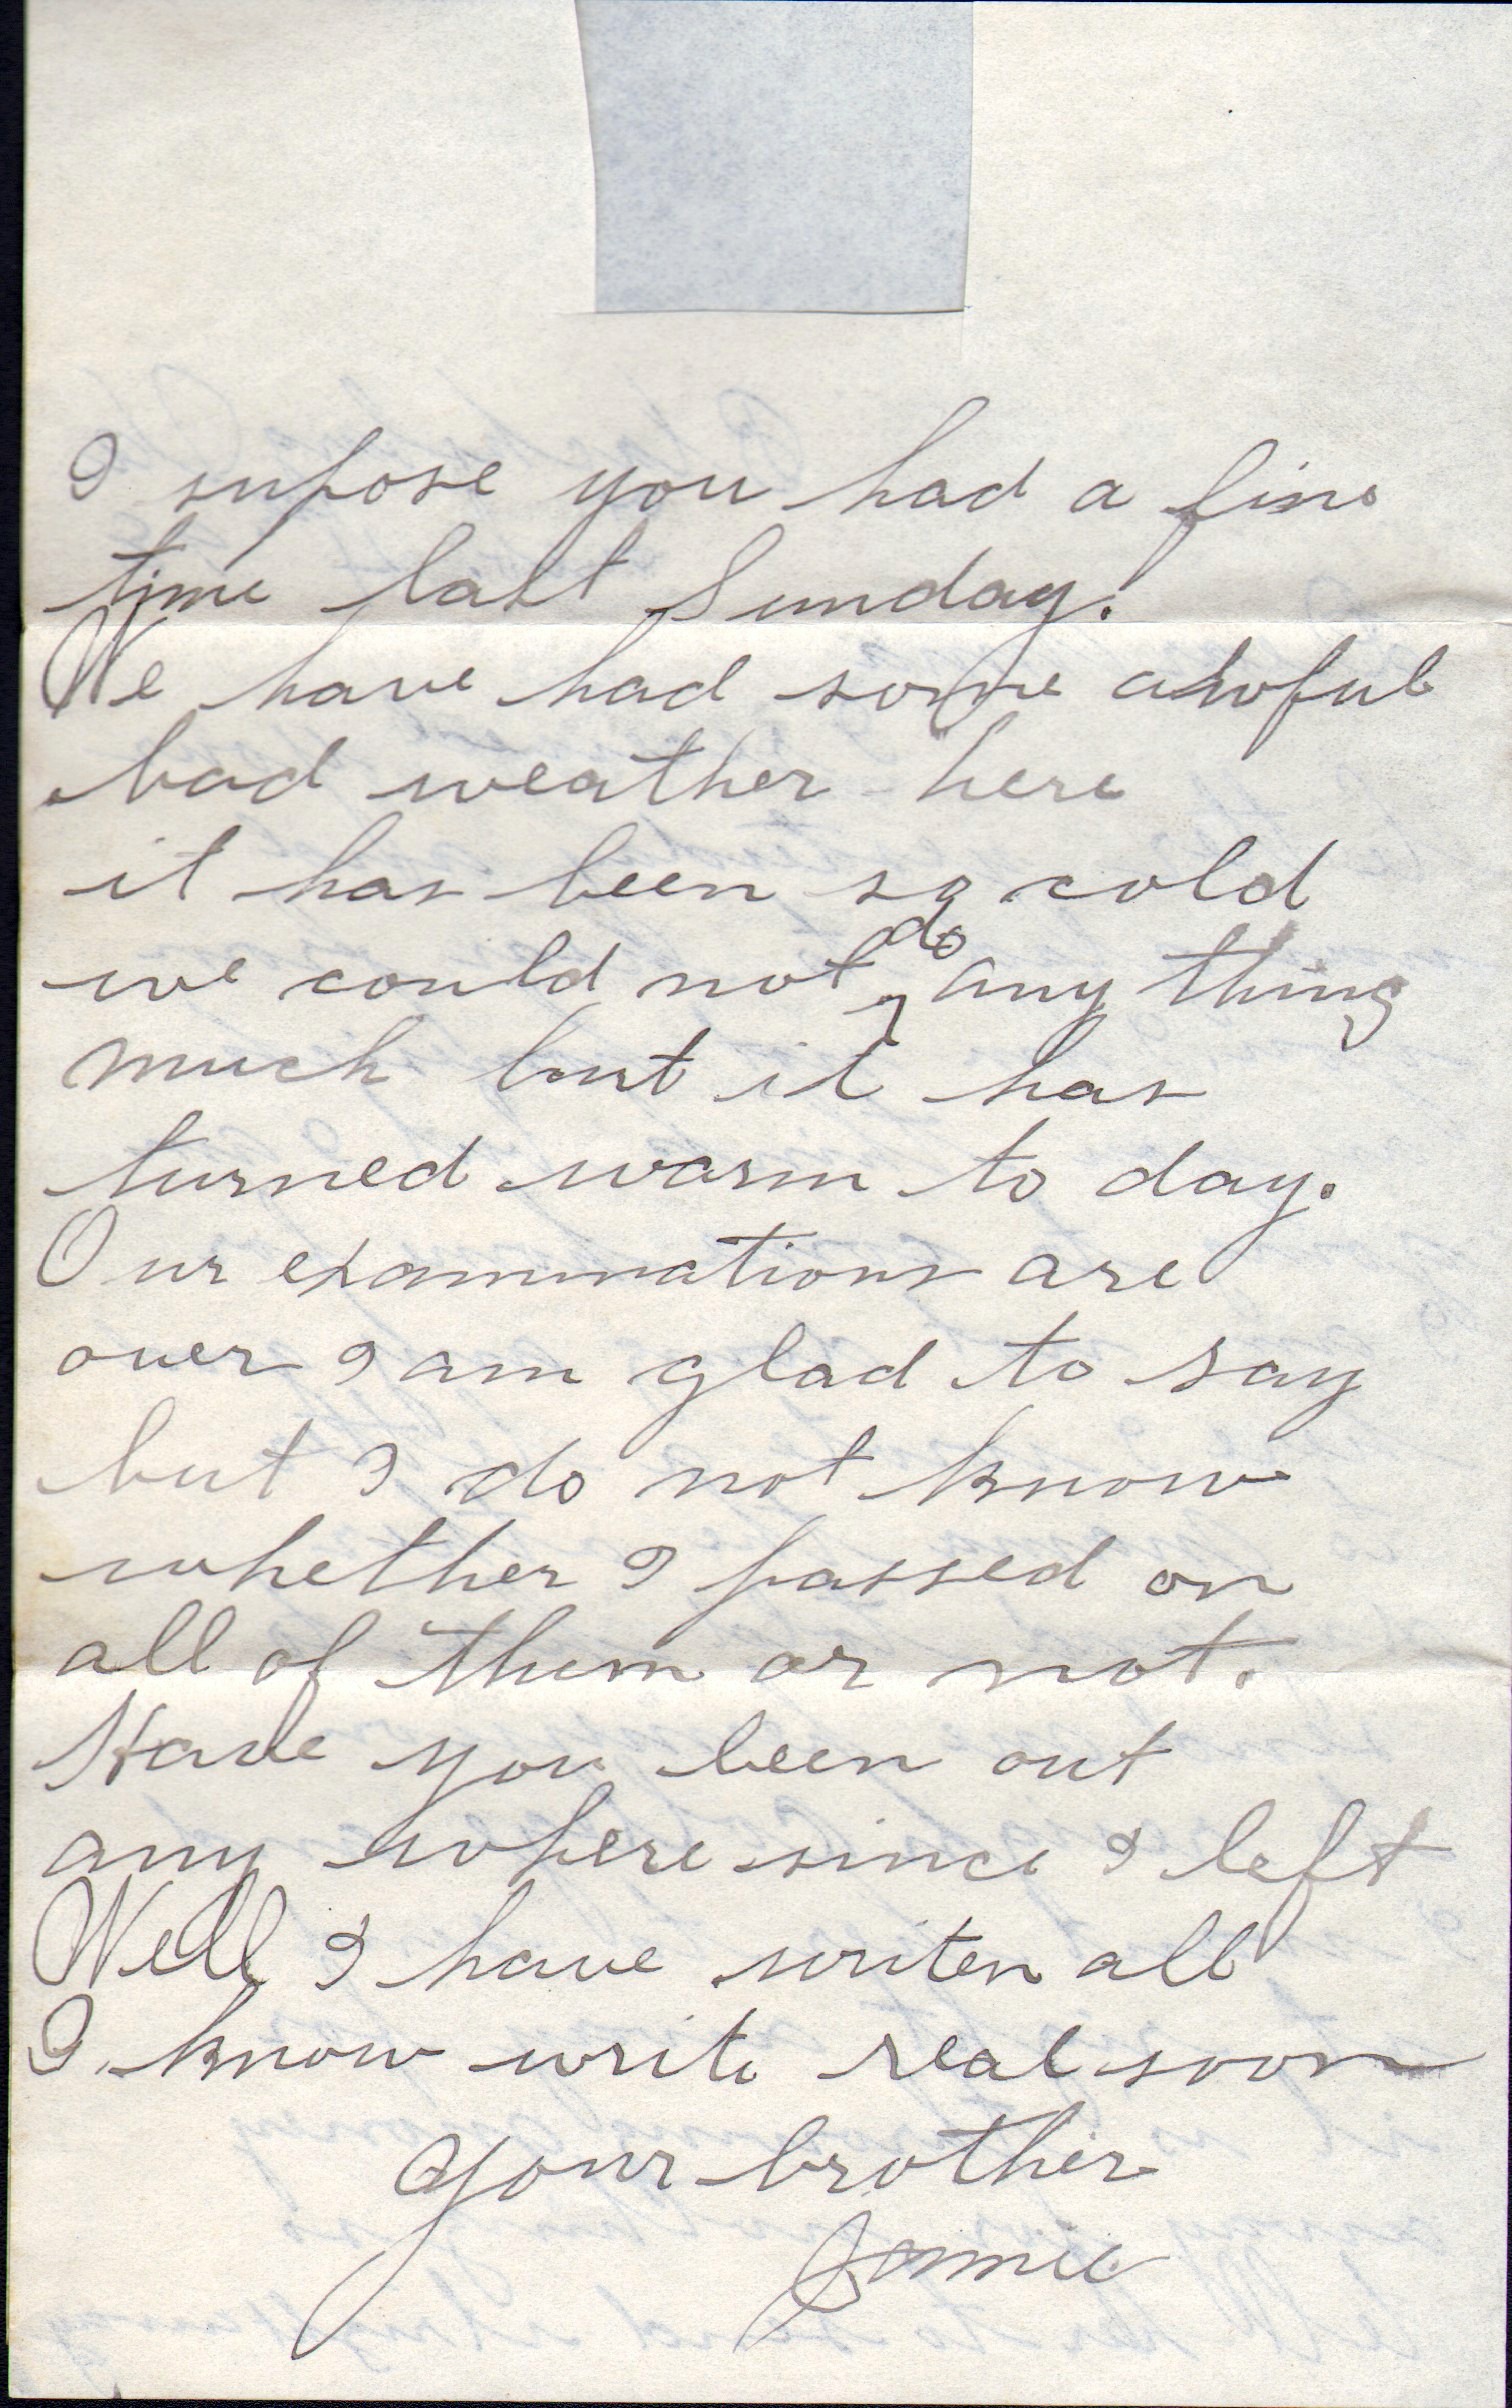 I supose you had a fine
time last Sunday.
We have had some awful
bad weather here
it has been so cold
we could not do any thing
much but it has
turned warm to day.
Our examinations are
over I am glad to say
but I do not know
whether I passed on
all of them or not.
Have you been out
any where since I left
Well I have writen all
I know write real soon
Your brother